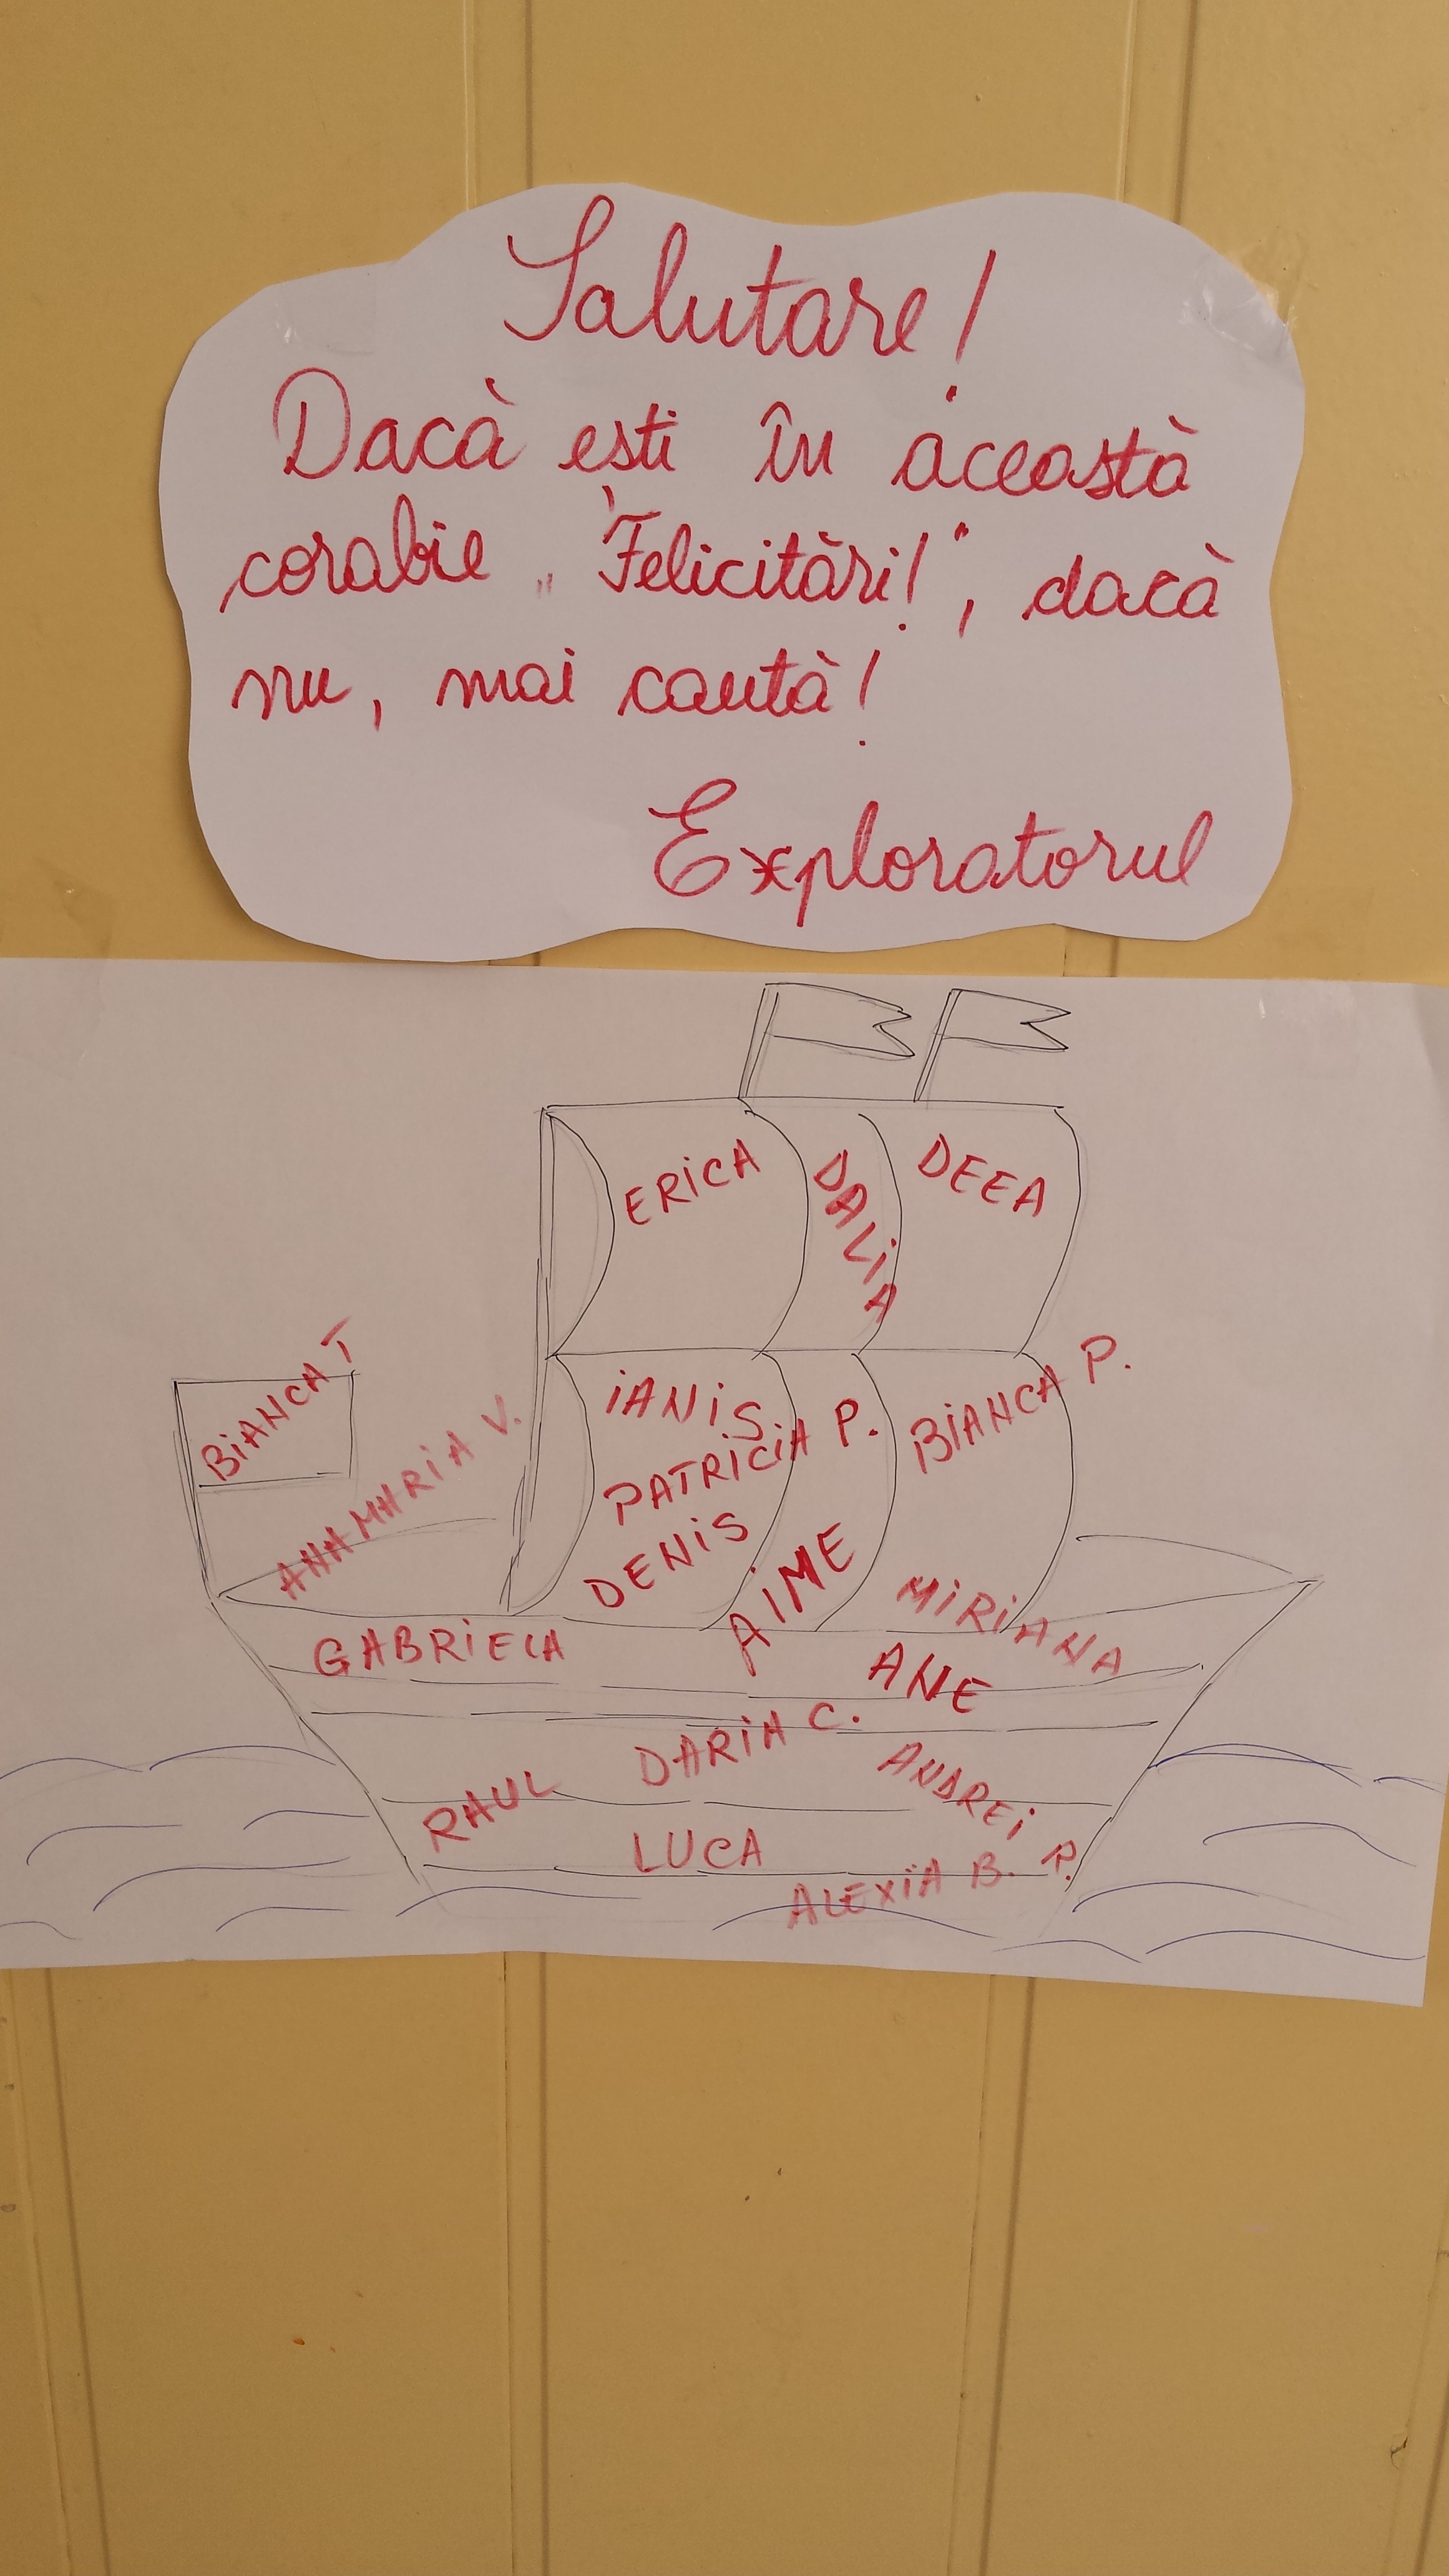 Salutare!
Dacă ești în această
corabie „Felicitări!", dacă
nu, mai caută!
Exploratorul
ERiCA
DALiA
DEEA
BiANCA T
ANAMARiA V.
iANiS
PATRICiA P.
DENiS
BiANCA P.
AiME
MiRiANA
GABRiELA
ANE
DARiA C.
RAUL
ANDREi R.
LUCA
ALEXiA B.